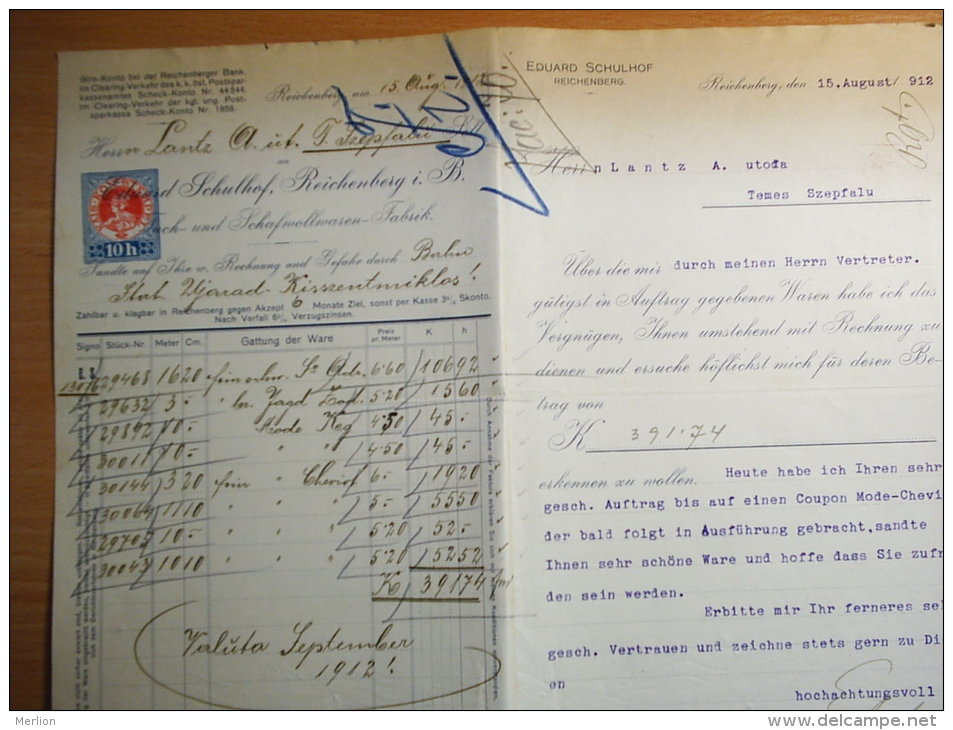 Giro-Konto bei der Reichenberger Bank.
Im Clearing-Verkehr des k. k. öst. Postspar-
kassenamtes Scheck-Konto Nr. 44.544.
Im Clearing-Verkehr der kgl. ung. Post-
sparkassa Scheck-Konto Nr. 1658.
Reichenberg am 15. Aug.
Herrn Lantz A. ut. T. Szepfalu
an
Eduard Schulhof, Reichenberg i. B.
Tuch- und Schafwollwaren-Fabrik.
10 h
Sandte auf Ihre w. Rechnung und Gefahr durch Berlin
Stat. Ujarad-Kisszentmiklos!
Zahlbar u. klagbar in Reichenberg gegen Akzept 6 Monate Ziel, sonst per Kasse 3% Skonto.
Nach Verfall 6% Verzugszinsen.
Signo Stück-Nr. Meter Cm. Gattung der Ware Preis pr. Meter K h
29468 16 20 6·60 106 92
29632 3 - 5·20 15 60
29892 10 - Mode 4·50 45 -
30011 10 - " " 4·50 45 -
30144 3 20 fein Cheviot 6 - 19 20
30064 11 10 " " 5 - 55 50
29705 10 - " " 5·20 52 -
30043 10 10 " " 5·20 52 52
K 391 74
Valuta September
1912!
EDUARD SCHULHOF
REICHENBERG.
Reichenberg, den 15.August/ 912
Herrn Lantz A. utoda
Temes Szepfalu
Über die mir durch meinen Herrn Vertreter.
gütigst in Auftrag gegebenen Waren habe ich das
Vergnügen, Ihnen umstehend mit Rechnung zu
dienen und ersuche höflichst mich für deren Be-
trag von
K 391·74
erkennen zu wollen. Heute habe ich Ihren sehr
gesch. Auftrag bis auf einen Coupon Mode-Chevi
der bald folgt in Ausführung gebracht,sandte
Ihnen sehr schöne Ware und hoffe dass Sie zufr
den sein werden.
Erbitte mir Ihr ferneres se
gesch. Vertrauen und zeichne stets gern zu Di
en
hochachtungsvoll
Merlion
www.delcampe.net